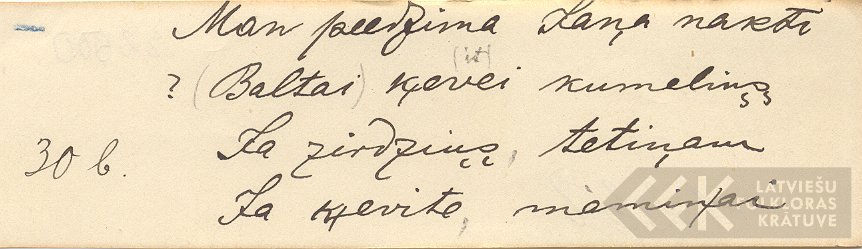 Man peedzima Jaņa nakti
(it)
? (Baltai) ķevei kumeliņš
30 b.
Ja zirdziņš, tētiņam
Ja ķevite, māmiņai
LATVIEŠU
FOLKLORAS
KRĀTUVE